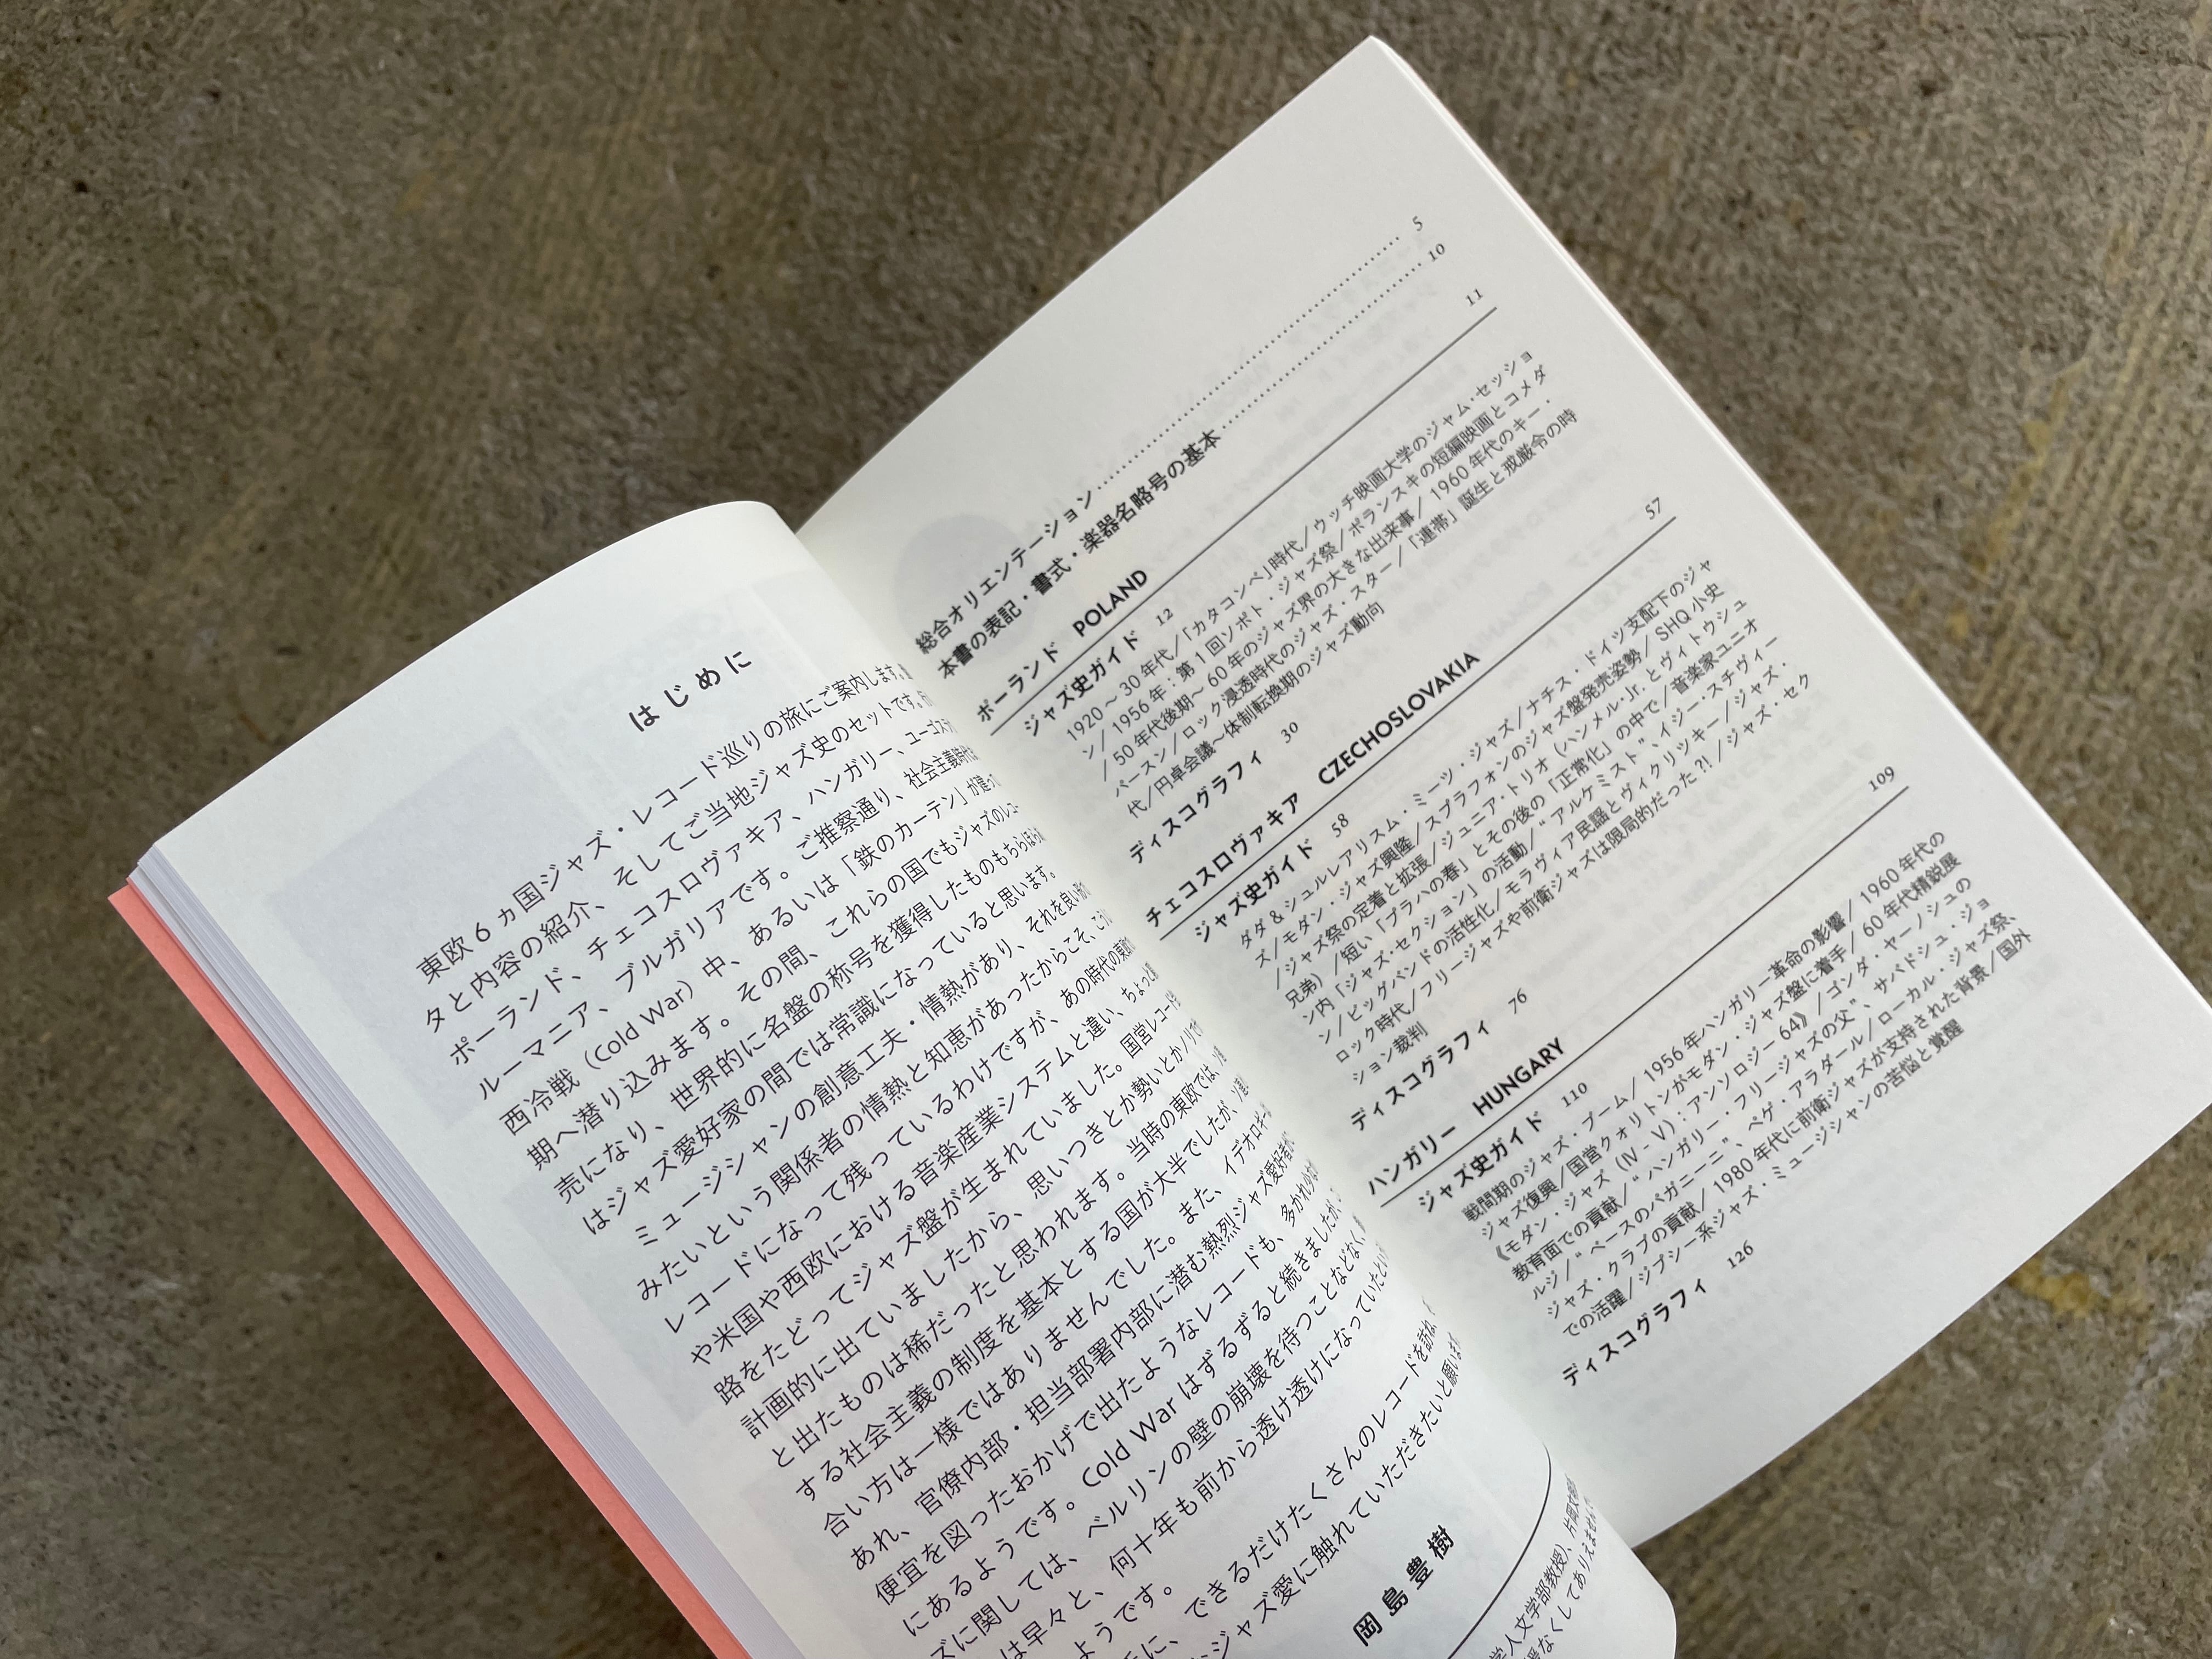 はじめに
東欧6ヵ国ジャズ・レコード巡りの旅にご案内します。
タと内容の紹介、そしてご当地ジャズ史のセットです。
ポーランド、チェコスロヴァキア、ハンガリー、ユーゴスラ
ルーマニア、ブルガリアです。ご推察通り、社会主義時代
西冷戦（Cold War）中、あるいは「鉄のカーテン」が違っ
期へ潜り込みます。その間、これらの国でもジャズのレコー
売になり、世界的に名盤の称号を獲得したものもちらほら
はジャズ愛好家の間では常識になっていると思います。
ミュージシャンの創意工夫・情熱があり、それを良い形
みたいという関係者の情熱と知恵があったからこそ、こう
レコードになって残っているわけですが、あの時代の東欧
や米国や西欧における音楽産業システムと違い、ちょっと
路をたどってジャズ盤が生まれていました。国営レコード
計画的に出ていましたから、思いつきとか勢いとかノリで
と出たものは稀だったと思われます。当時の東欧では、ソ連
する社会主義の制度を基本とする国が大半でしたが、ソ連
合い方は一様ではありませんでした。また、イデオロギー
あれ、官僚内部・担当部署内部に潜む熱烈ジャズ愛好者が
便宜を図ったおかげで出たようなレコードも、多かれ少なか
にあるようです。Cold War はずるずると続きましたが、
ズに関しては、ベルリンの壁の崩壊を待つことなどなく、
は早々と、何十年も前から透け透けになっていたという
ようです。
に、できるだけたくさんのレコードを訪ね、
ジャズ愛に触れていただきたいと願います
岡島豊樹
学人文学部教授）、片岡文
なくしてありえません
総合オリエンテーション 5
本書の表記・書式・楽器名略号の基本 10
ポーランド POLAND 11
ジャズ史ガイド 12
1920～30年代／「カタコンベ」時代／ウッチ映画大学のジャム・セッショ
ン／1956年：第1回ソポト・ジャズ祭／ポランスキの短編映画とコメダ
／50年代後期～60年のジャズ界の大きな出来事／1960年代のキー・
パースン／ロック浸透時代のジャズ・スター／「連帯」誕生と戒厳令の時
代／円卓会議～体制転換期のジャズ動向
ディスコグラフィ 30
チェコスロヴァキア CZECHOSLOVAKIA 57
ジャズ史ガイド 58
ダダ＆シュルレアリスム・ミーツ・ジャズ／ナチス・ドイツ支配下のジャ
ズ／モダン・ジャズ興隆／スプラフォンのジャズ盤発売姿勢／SHQ小史
／ジャズ祭の定着と拡張／ジュニア・トリオ（ハンメル・Jr.とヴィトウシュ
兄弟）／短い「プラハの春」とその後の「正常化」の中で／音楽家ユニオ
ン内「ジャズ・セクション」の活動／“アルケミスト”、イジー・スチヴィー
ン／ビッグバンドの活性化／モラヴィア民謡とヴィクリツキー／ジャズ・
ロック時代／フリージャズや前衛ジャズは限局的だった?!／ジャズ・セク
ション裁判
ディスコグラフィ 76
ハンガリー HUNGARY 109
ジャズ史ガイド 110
戦間期のジャズ・ブーム／1956年ハンガリー革命の影響／1960年代の
ジャズ復興／国営クォリトンがモダン・ジャズ盤に着手／60年代精鋭展
《モダン・ジャズ（IV - V）：アンソロジー64》／ゴンダ・ヤーノシュの
教育面での貢献／“ハンガリー・フリージャズの父”、サバドシュ・ジョ
ルジ／“ベースのパガニーニ”、ペゲ・アラダール／ローカル・ジャズ祭、
ジャズ・クラブの貢献／1980年代に前衛ジャズが支持された背景／国外
での活躍／ジプシー系ジャズ・ミュージシャンの苦悩と覚醒
ディスコグラフィ 126